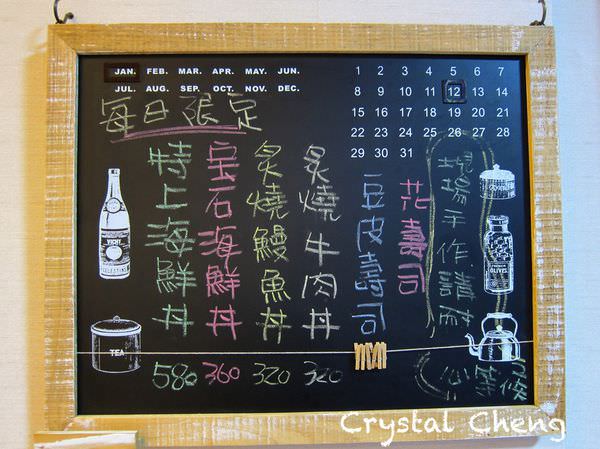 JAN. FEB. MAR. APR. MAY. JUN.
JUL. AUG. SEP. OCT. NOV. DEC.
1 2 3 4 5 6 7
8 9 10 11 12 13 14
15 16 17 18 19 20 21
22 23 24 25 26 27 28
29 30 31
每日限定
現場手作請耐
心等候
花壽司
豆皮壽司
炙燒牛肉丼 320
炙燒鰻魚丼 320
宝石海鮮丼 360
特上海鮮丼 580
VICHY
CELESTINS
TEA
OLIVES
Crystal Cheng